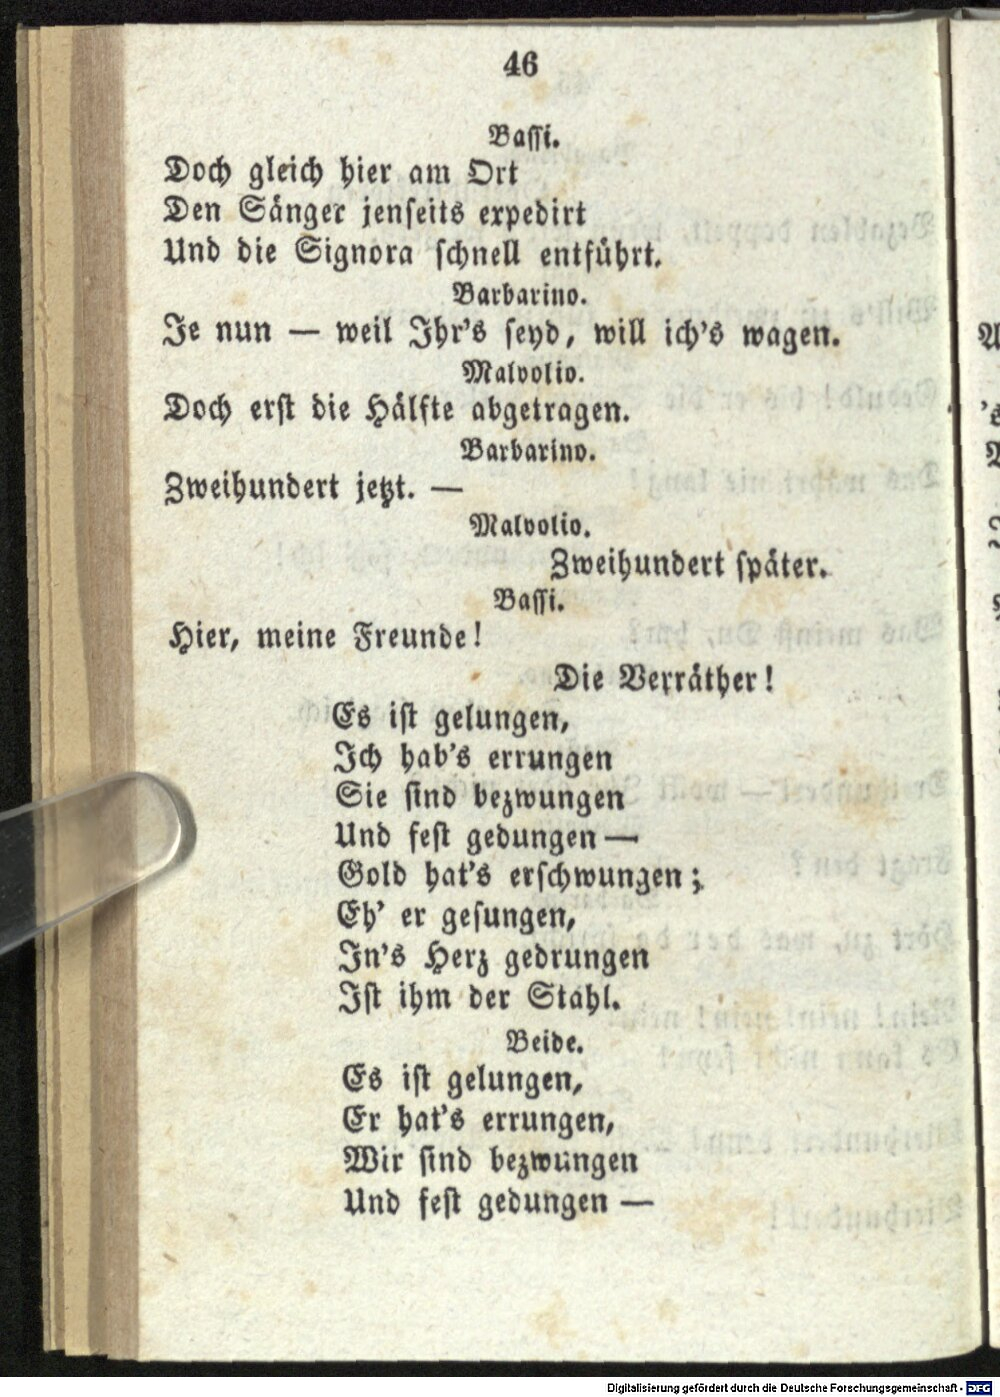 46
Bassi.
Doch gleich hier am Ort
Den Sänger jenseits expedirt
Und die Signora schnell entführt.
Barbarino.
Je nun — weil Ihr's seyd, will ich's wagen.
Malvolio.
Doch erst die Hälfte abgetragen.
Barbarino.
Zweihundert jetzt. —
Malvolio.
Zweihundert später.
Bassi.
Hier, meine Freunde!
Die Verräther!
Es ist gelungen,
Ich hab's errungen
Sie sind bezwungen
Und fest gedungen —
Gold hat's erschwungen;
Eh' er gesungen,
In's Herz gedrungen
Ist ihm der Stahl.
Beide.
Es ist gelungen,
Er hat's errungen,
Wir sind bezwungen
Und fest gedungen —
Digitalisierung gefördert durch die Deutsche Forschungsgemeinschaft - DFG